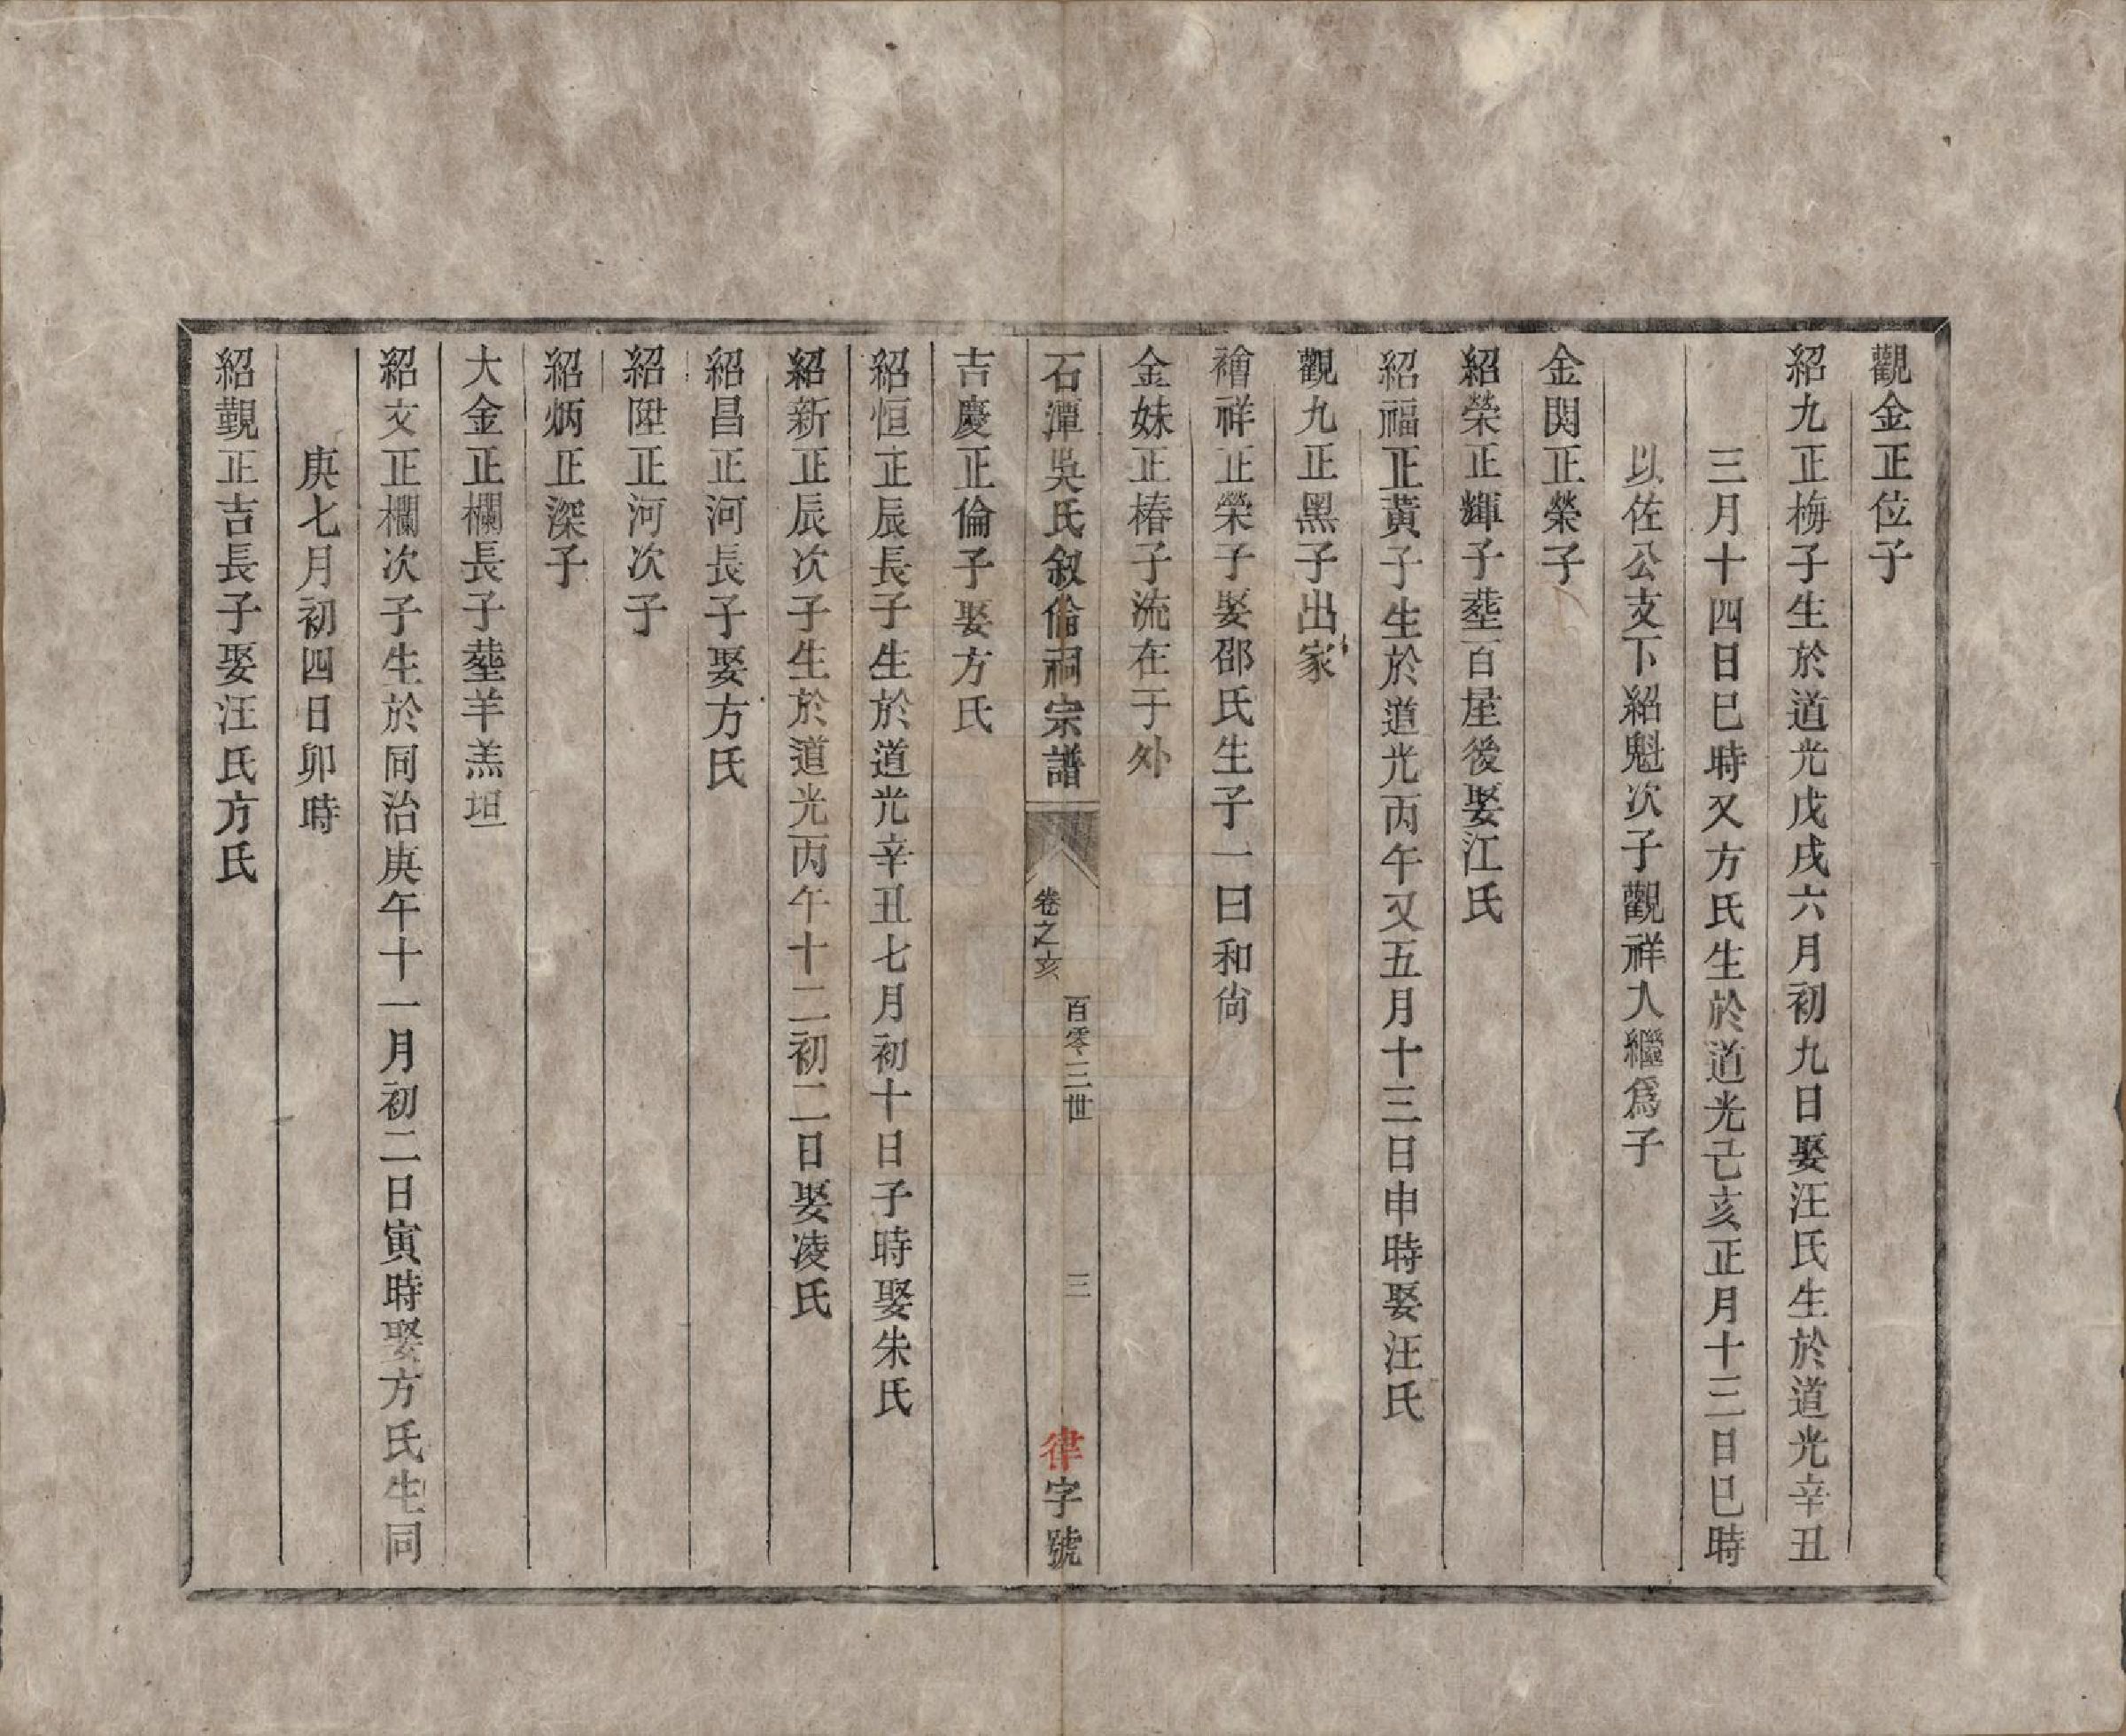 觀金正位子
紹九正梅子生於道光戊戌六月初九日娶汪氏生於道光辛丑
三月十四日巳時又方氏生於道光己亥正月十三日巳時
以佐公支下紹魁次子觀祥入繼爲子
金閔正榮子
紹榮正輝子塟百屋後娶江氏
紹福正黃子生於道光丙午又五月十三日申時娶汪氏
觀九正黑子出家
禬祥正榮子娶邵氏生子一曰和尙
金妹正椿子流在于外
石潭吳氏叙倫祠宗譜
卷之亥
百零三世
三
律字號
吉慶正倫子娶方氏
紹恒正辰長子生於道光辛丑七月初十日子時娶朱氏
紹新正辰次子生於道光丙午十二初二日娶凌氏
紹昌正河長子娶方氏
紹陞正河次子
紹炳正深子
大金正欄長子塟羊羔坦
紹文正欄次子生於同治庚午十一月初二日寅時娶方氏生同
庚七月初四日卯時
紹觀正吉長子娶汪氏方氏